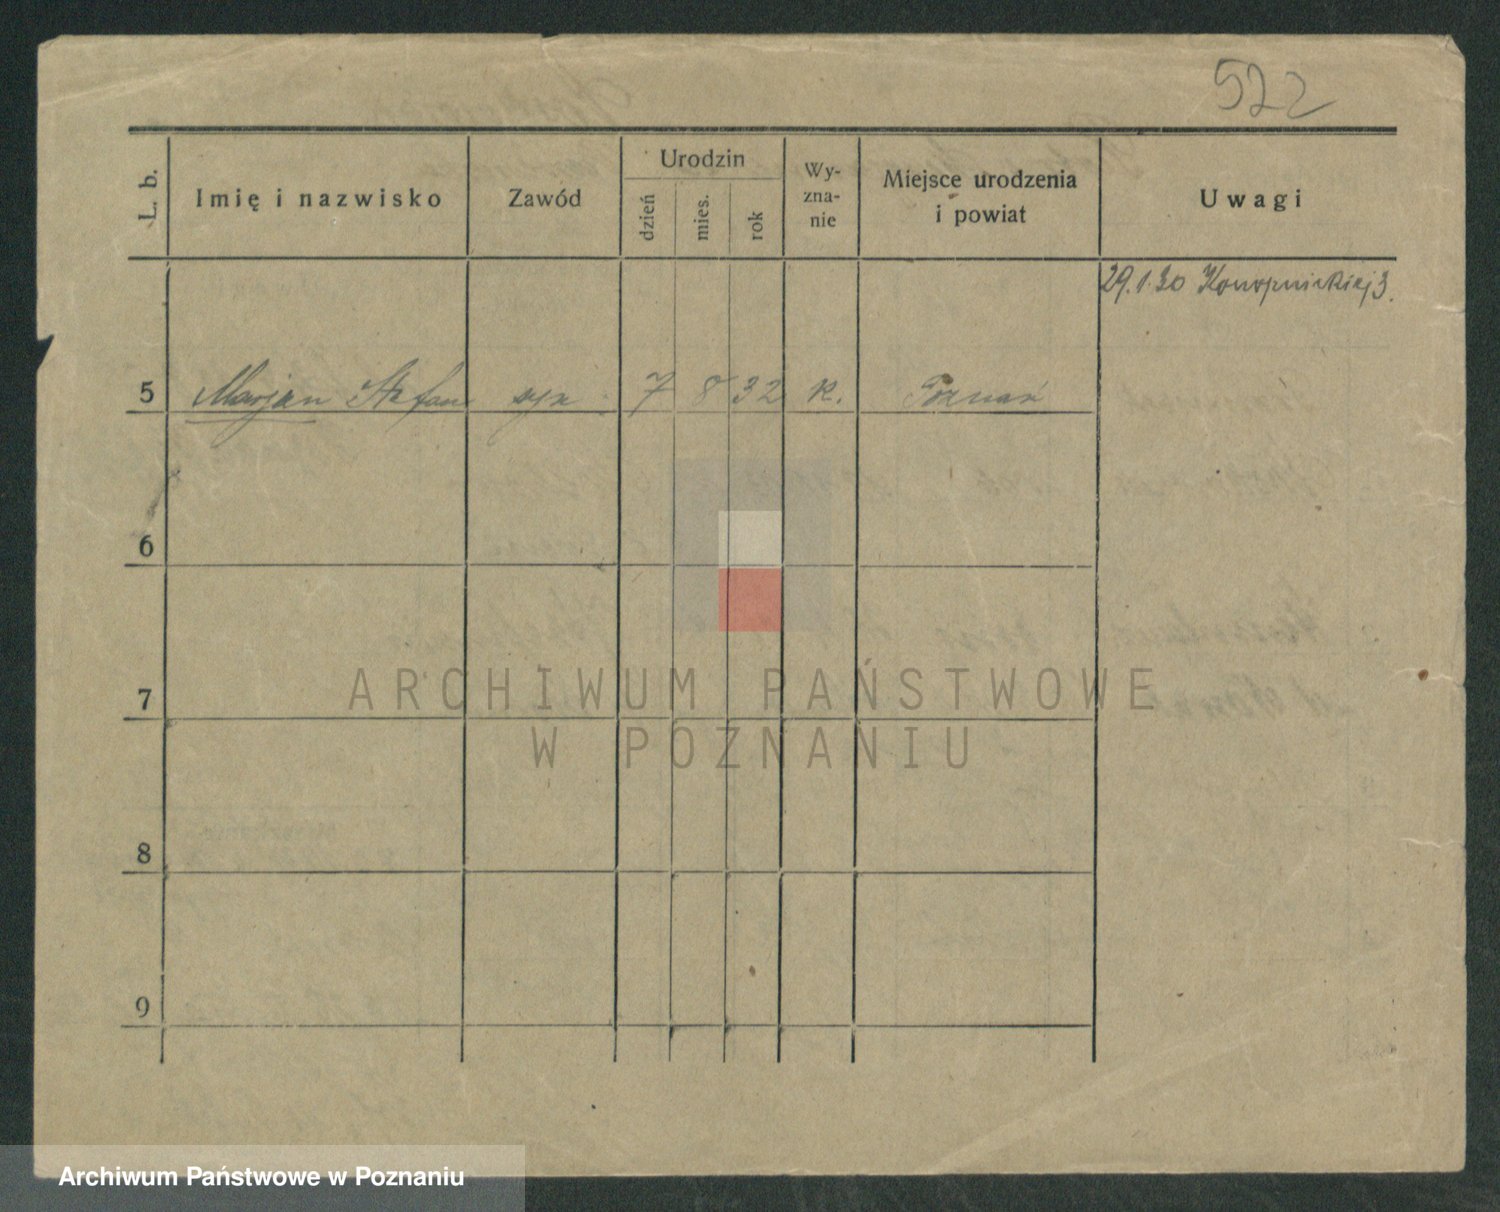 522
L. b.
Imię i nazwisko
Zawód
Urodzin
dzień
mies.
rok
Wy-
zna-
nie
Miejsce urodzenia
i powiat
Uwagi
29.1.30 Konopnickiej 3.
5 Marjan Stefan syn 7 8 32 k. Poznań
6
7
8
9
ARCHIWUM PAŃSTWOWE
W POZNANIU
Archiwum Państwowe w Poznaniu